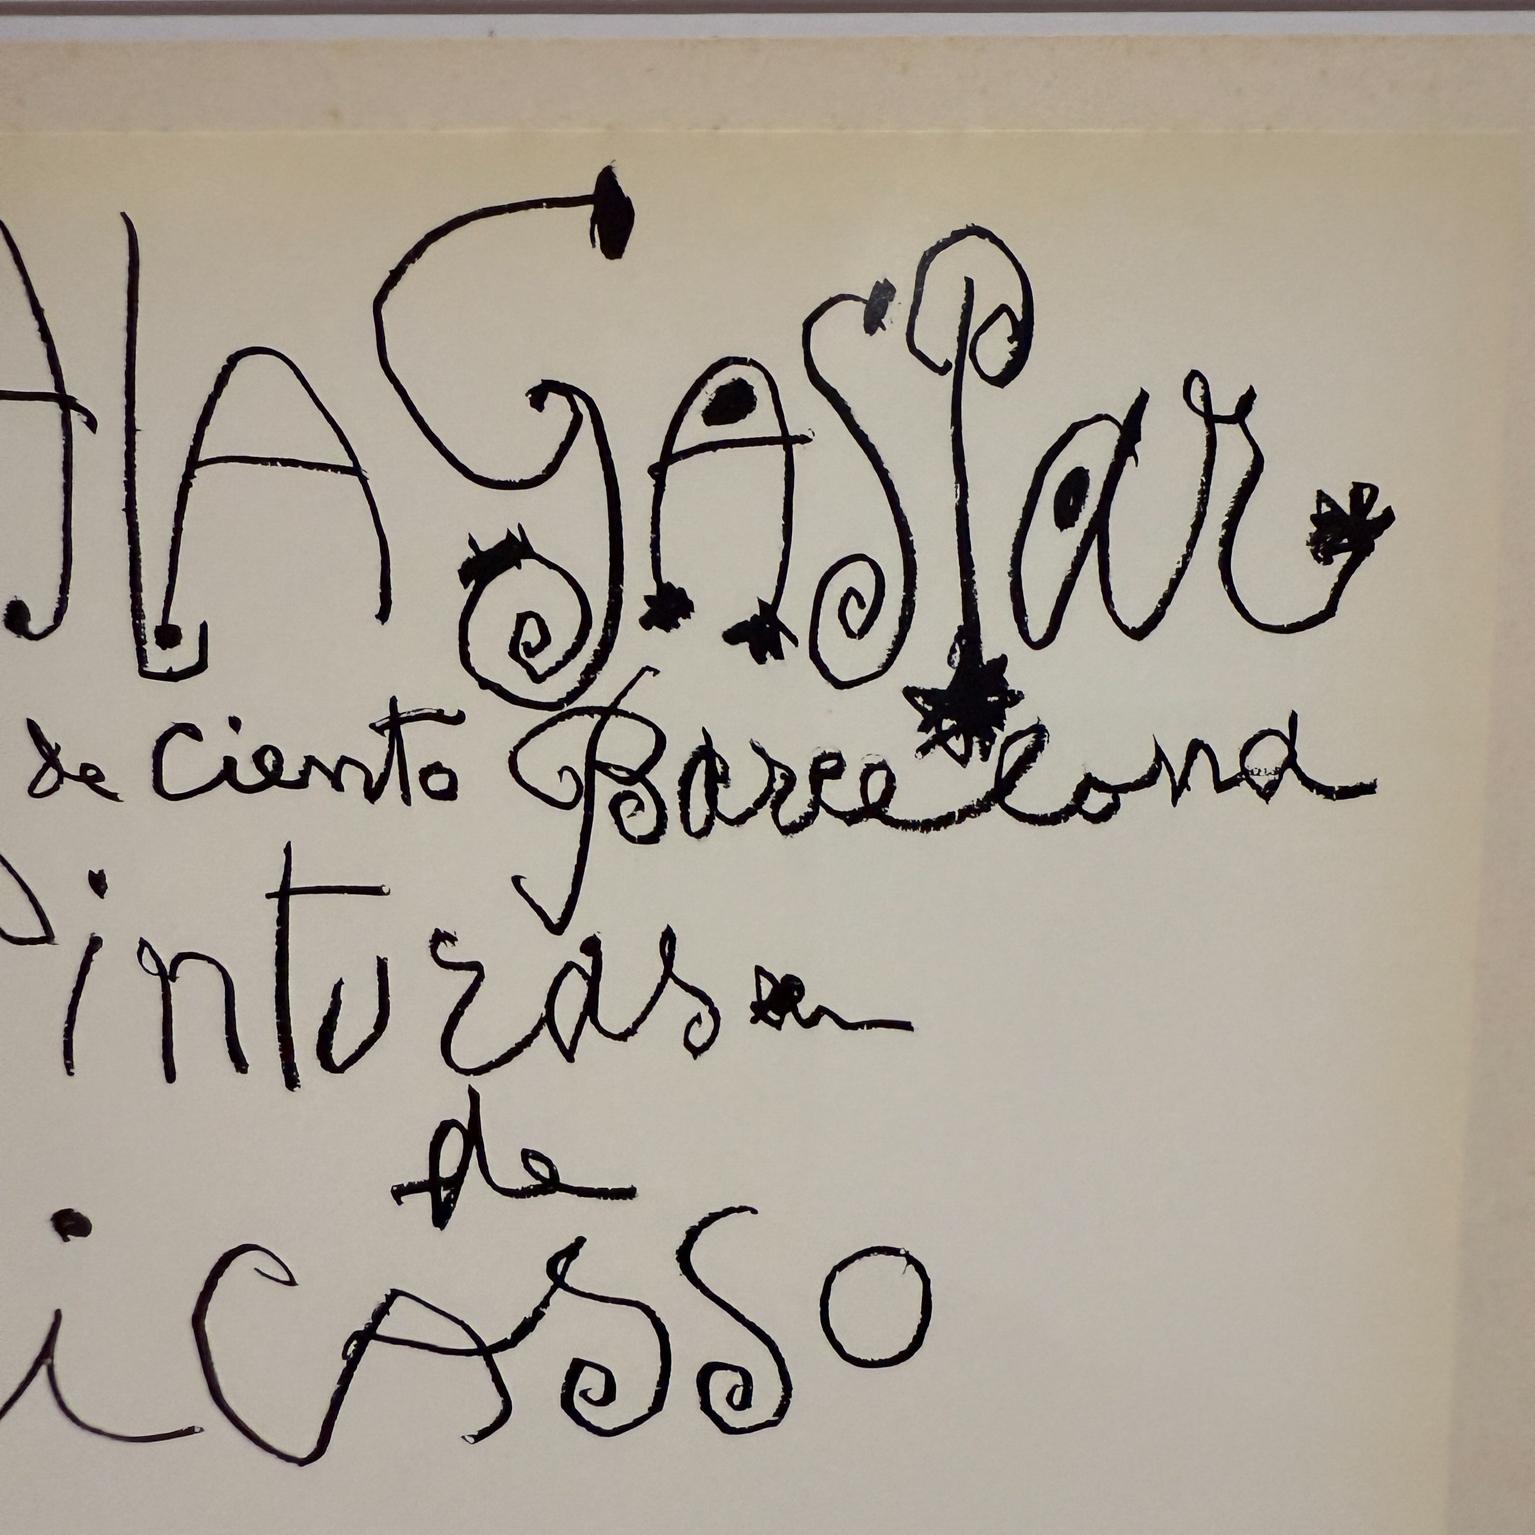 AlA GASPar
de ciento Barcelona
Pinturas
de
icASSO